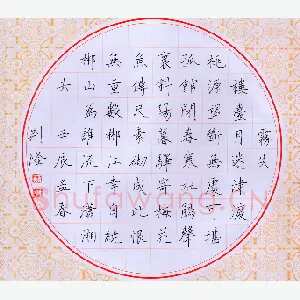 霧失
樓臺月迷津渡
桃源望斷無尋處可堪
孤館閉春寒杜鵑聲
裏斜陽暮驛寄梅花
魚傳尺素砌成此恨
無重數郴江幸自繞
郴山為誰流下瀟湘
去 壬辰孟春
劉澄
Shufawang.CN